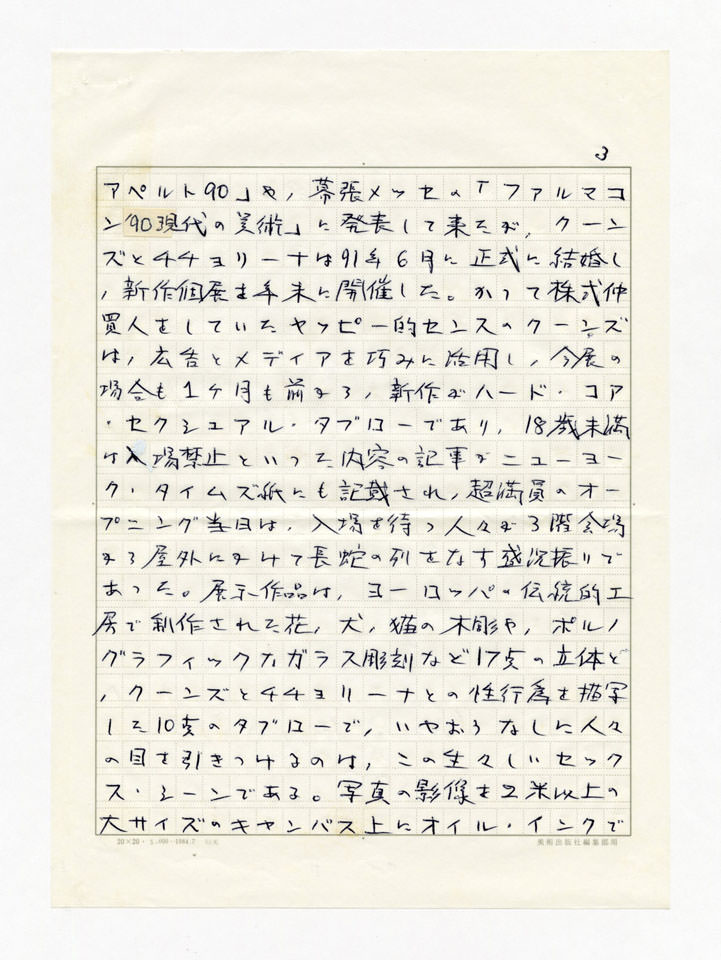 3
アペルト90」や、幕張メッセの「ファルマコ
ン'90現代の美術」に発表して来たが、クーン
ズとチチョリーナは91年6月に正式に結婚し
、新作個展を年末に開催した。かつて株式仲
買人をしていたヤッピー的センスのクーンズ
は、広告とメディアを巧みに活用し、今展の
場合も1ケ月も前から、新作がハード・コア
・セクシュアル・タブローであり、18歳未満
は入場禁止といった内容の記事がニューヨー
ク・タイムズ紙にも記載され、超満員のオー
プニング当日は、入場を待つ人々が3階会場
から屋外にかけて長蛇の列をなす盛況振りで
あった。展示作品は、ヨーロッパの伝統的工
房で制作された花、犬、猫の木彫や、ポルノ
グラフィックなガラス彫刻など17点の立体と
、クーンズとチチョリーナとの性行為を描写
した10点のタブローで、いやおうなしに人々
の目を引きつけるのは、この生々しいセック
ス・シーンである。写真の影像を2米以上の
大サイズのキャンバス上にオイル・インクで
20×20・5,000・1984.7
美術出版社編集部用